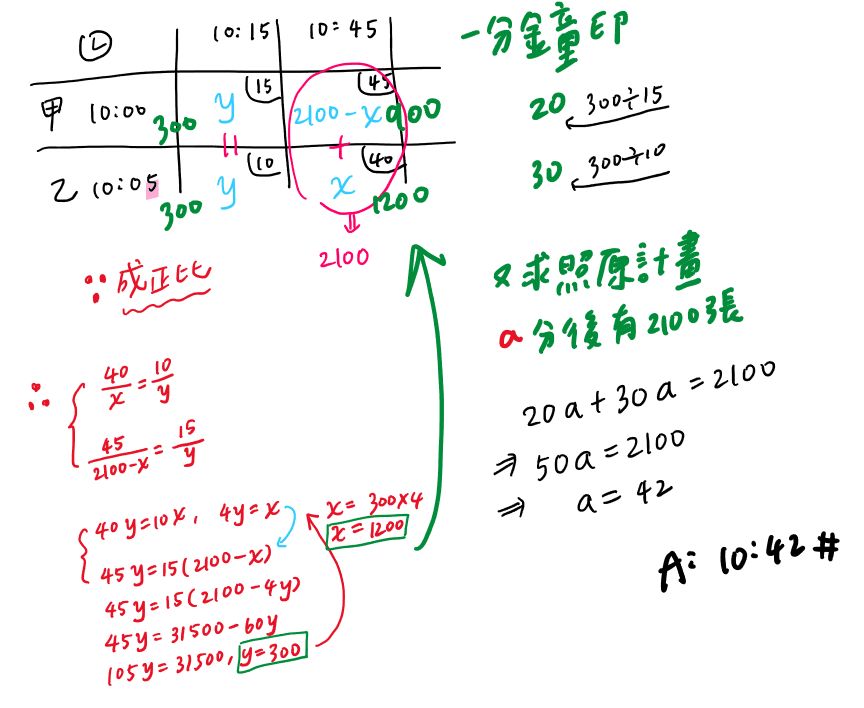 ② 10:15 10:45
甲 10:00 300 y 15 2100-x 45 900
= +
乙 10:05 300 y 10 x 40 1200
⇓
2100
∵成正比
∴ { 40/x = 10/y
45/(2100-x) = 15/y
{ 40y=10x, 4y=x
45y=15(2100-x)
45y=15(2100-4y)
45y=31500-60y
105y=31500, y=300
x=300×4
x=1200
一分鐘印
20 300÷15
30 300÷10
又求照原計畫
a分後有2100張
20a+30a=2100
⇒ 50a=2100
⇒ a=42
A: 10:42#